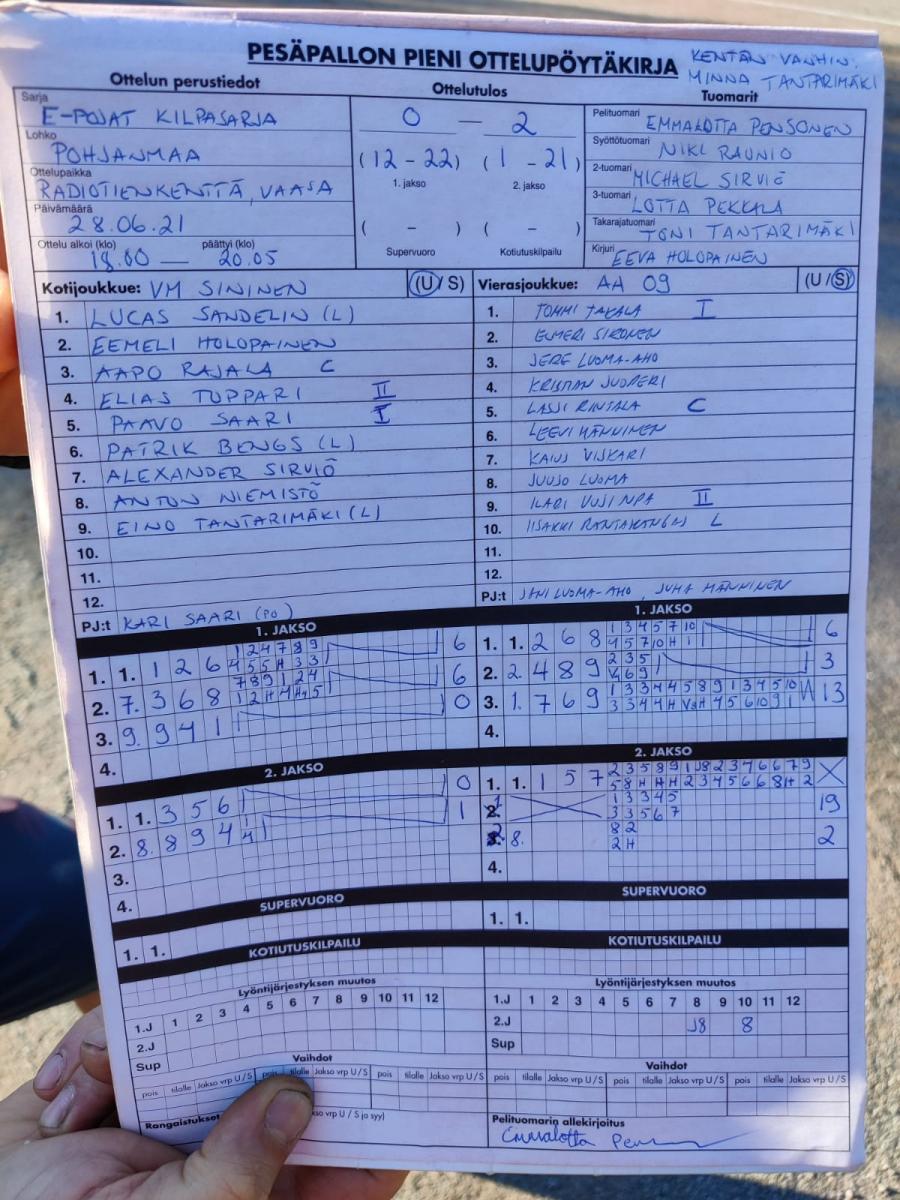 PESÄPALLON PIENI OTTELUPÖYTÄKIRJA
KENTÄN VANHIN:
MINNA TANTARIMÄKI
Ottelun perustiedot
Ottelutulos
Tuomarit
Sarja
E-POJAT KILPASARJA
Lohko
POHJANMAA
Ottelupaikka
RADIOTIENKENTTÄ, VAASA
Päivämäärä
28.06.21
Ottelu alkoi (klo) päättyi (klo)
18.00 — 20.05
0 — 2
(12 - 22) (1 - 21)
1. jakso 2. jakso
( - ) ( - )
Supervuoro Kotiutuskilpailu
Pelituomari EMMALOTTA PENSONEN
Syöttötuomari NIKI RAUNIO
2-tuomari MICHAEL SIRVIÖ
3-tuomari LOTTA PEKKALA
Takarajatuomari TONI TANTARIMÄKI
Kirjuri EEVA HOLOPAINEN
Kotijoukkue: VM SININEN (U / S)
1. LUCAS SANDELIN (L)
2. EEMELI HOLOPAINEN
3. AAPO RAJALA C
4. ELIAS TOPPARI II
5. PAAVO SAARI I
6. PATRIK BENGS (L)
7. ALEXANDER SIRVIÖ
8. ANTON NIEMISTÖ
9. EINO TANTARIMÄKI (L)
10.
11.
12.
PJ:t KARI SAARI (PO)
Vierasjoukkue: AA 09 (U / S)
1. TOMMI TAKALA I
2. ELMERI SIRONEN
3. JERE LUOMA-AHO
4. KRISTIAN JUOPERI
5. LASSI RINTALA C
6. LEEVI MÄNNINEN
7. KAIUS VISKARI
8. JUUSO LUOMA
9. ILARI UUSINPA II
10. IISAKKI RANTAKANGAS L
11.
12.
PJ:t JANI LUOMA-AHO, JUHA MÄNNINEN
1. JAKSO
1. 1. 1 2 6 1 2 4 7 8 9 6
4 5 5 H 3 3
2. 7. 3 6 8 7 8 9 1 2 4 6
3. 9. 9 4 1 0
4.
2. JAKSO
1. 1. 3 5 6 0
2. 8. 8 9 4 1
3.
4.
SUPERVUORO
1. 1.
KOTIUTUSKILPAILU
Lyöntijärjestyksen muutos
1.J 1 2 3 4 5 6 7 8 9 10 11 12
2.J
Sup
Vaihdot
pois tilalle Jakso vrp U / S pois tilalle Jakso vrp U / S pois tilalle Jakso vrp U / S
Rangaistukset
vrp U / S (ja syy)
1. JAKSO
1. 1. 2 6 8 1 3 4 5 7 10 6
4 5 7 10 H 1
2. 2. 4 8 9 2 3 5 3
4 6 9
3. 1. 7 6 9 1 3 3 4 4 5 8 9 1 3 4 5 10 13
4.
2. JAKSO
1. 1. 1 5 7 2 3 5 8 9 1 J8 2 3 4 6 6 7 9
5 8 H H H 2 3 4 5 6 6 8 H 2
1 3 3 4 5 19
3 3 5 6 7
2 8. 8 2 2
2 H
4.
SUPERVUORO
1. 1.
KOTIUTUSKILPAILU
Lyöntijärjestyksen muutos
1.J 1 2 3 4 5 6 7 8 9 10 11 12
2.J J8 8
Sup
Vaihdot
pois tilalle Jakso vrp U / S pois tilalle Jakso vrp U / S pois tilalle Jakso vrp U / S
Pelituomarin allekirjoitus
Emmalotta